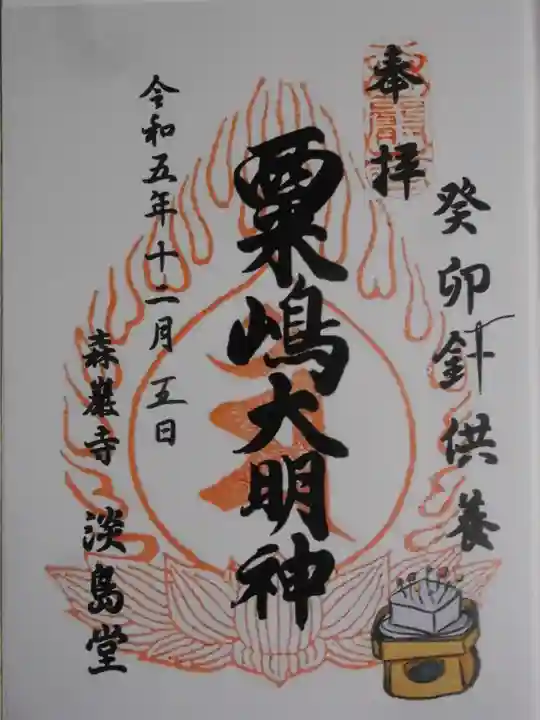 奉拝
癸卯針供養
粟嶋大明神
令和五年十二月五日
森巌寺 淡島堂